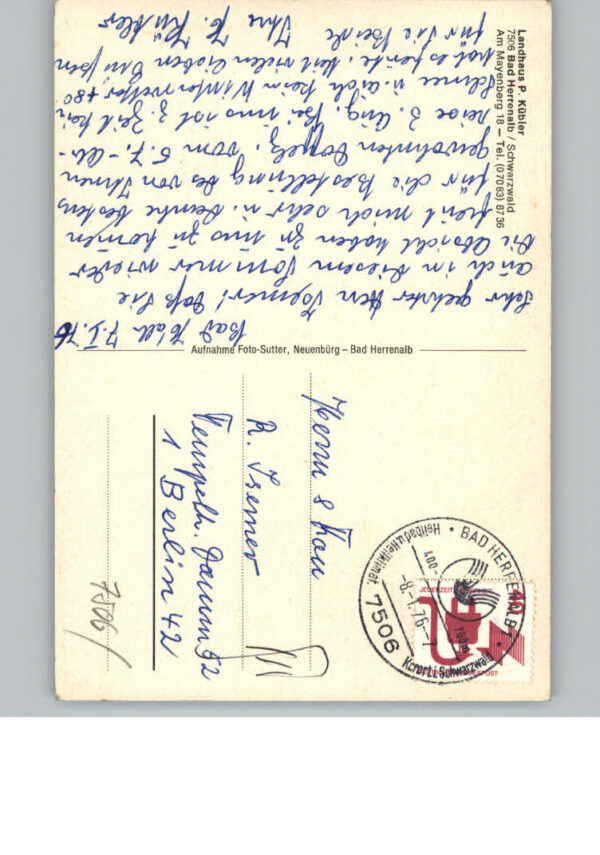 Landhaus P. Kübler
7506 Bad Herrenalb / Schwarzwald
Am Mayenberg 18 — Tel. (07083) 8736
Bad H'alb 7.I.76
Sehr geehrter Herr Isemer! Daß Sie
auch in diesem Sommer wieder
die Absicht haben zu uns zu kommen
freut mich sehr u. danke bestens
für die Bestellung des von Ihnen
gewohnten Doppelz. vom 5.7.-Ab-
reise 3. Aug. Bei uns ist z. Zeit kein
Schnee u. auch kein Winterwetter, +8°
hat es heute. Mit vielen lieben Grüßen
für Sie Beide Ihre
Aufnahme Foto-Sutter, Neuenbürg – Bad Herrenalb
Herrn & Frau
R. Isemer
Tempelh. Damm 52
1 Berlin 42
7506/
7506 BAD HERRENALB 1
-8.-1.76-
Heilbad u. Heilklimat.
Kurort i. Schwarzwald
700m
40
JEDERZEIT SICHERHEIT
DEUTSCHE BUNDESPOST